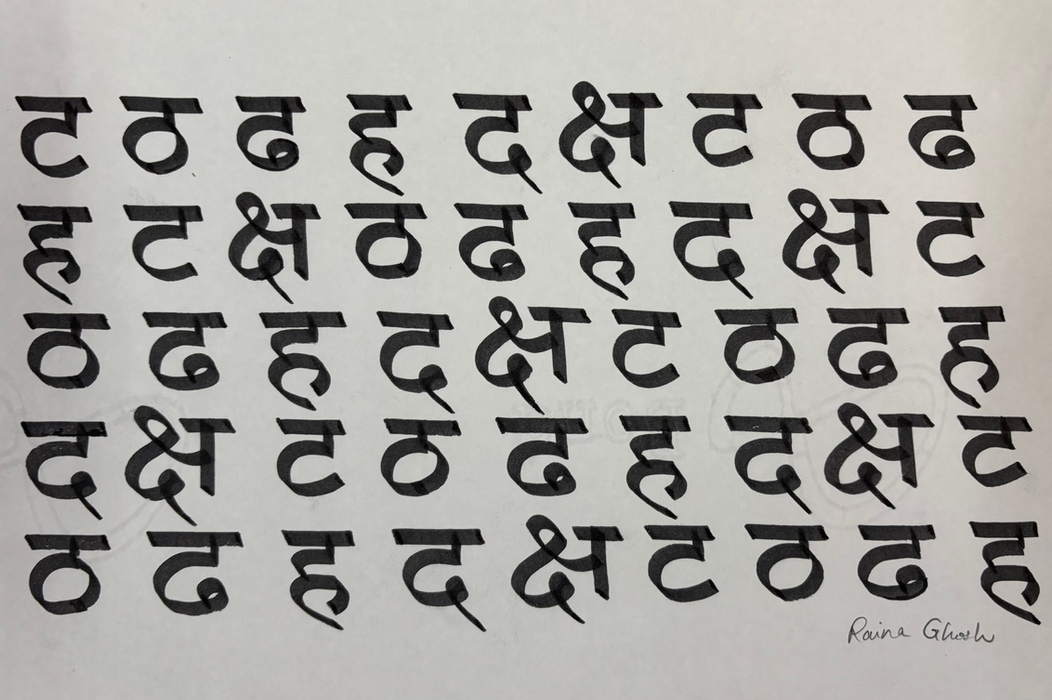 ट ठ ढ ह द क्ष ट ठ ढ
ह ट क्ष ठ ढ ह द क्ष ट
ठ ढ ह द क्ष ट ठ ढ ह
द क्ष ट ठ ढ ह द क्ष ट
ठ ढ ह द क्ष ट ठ ढ ह
Raina Ghosh